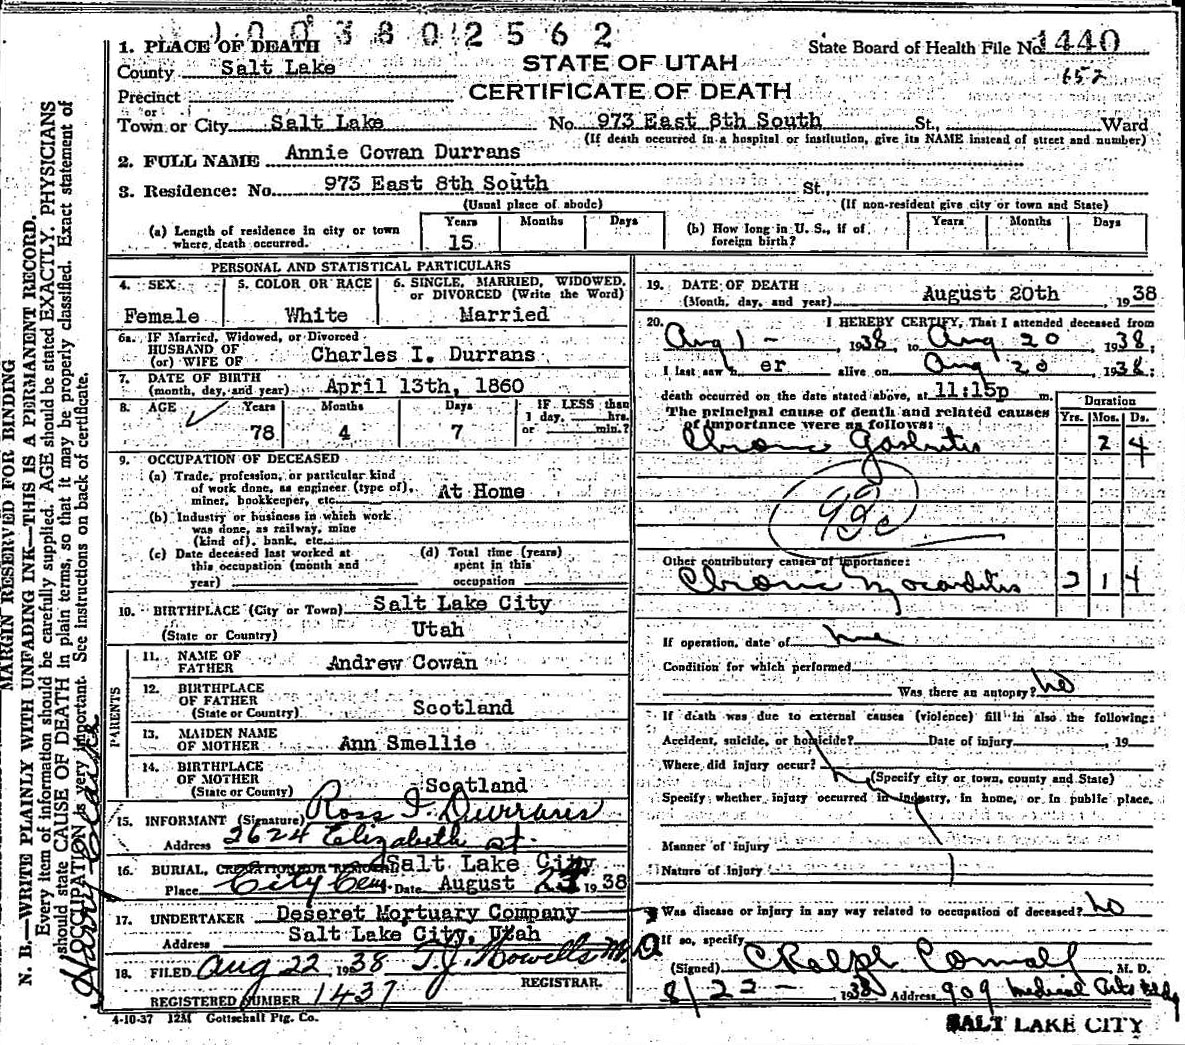 1003802562
State Board of Health File No. 1440
652
STATE OF UTAH
CERTIFICATE OF DEATH
1. PLACE OF DEATH
County Salt Lake
Precinct
or
Town or City Salt Lake No. 973 East 8th South St., Ward
(If death occurred in a hospital or institution, give its NAME instead of street and number)
2. FULL NAME Annie Cowan Durrans
3. Residence: No. 973 East 8th South St.,
(Usual place of abode) (If non-resident give city or town and State)
(a) Length of residence in city or town where death occurred. Years 15 Months Days
(b) How long in U. S., if of foreign birth? Years Months Days
PERSONAL AND STATISTICAL PARTICULARS
4. SEX Female
5. COLOR OR RACE White
6. SINGLE, MARRIED, WIDOWED, or DIVORCED (Write the Word) Married
6a. IF Married, Widowed, or Divorced
HUSBAND OF
(or) WIFE OF Charles I. Durrans
7. DATE OF BIRTH
(month, day, and year) April 13th, 1860
8. AGE Years 78 Months 4 Days 7 IF LESS than 1 day, hrs. or min.?
9. OCCUPATION OF DECEASED
(a) Trade, profession, or particular kind
of work done, as engineer (type of),
miner, bookkeeper, etc. At Home
(b) Industry or business in which work
was done, as railway, mine
(kind of), bank, etc.
(c) Date deceased last worked at
this occupation (month and
year)
(d) Total time (years)
spent in this
occupation
10. BIRTHPLACE (City or Town) Salt Lake City
(State or Country) Utah
PARENTS
11. NAME OF
FATHER Andrew Cowan
12. BIRTHPLACE
OF FATHER
(State or Country) Scotland
13. MAIDEN NAME
OF MOTHER Ann Smellie
14. BIRTHPLACE
OF MOTHER
(State or County) Scotland
15. INFORMANT (Signature) Ross I. Durrans
Address 2624 Elizabeth st
16. BURIAL, CREMATION OR REMOVAL Salt Lake City
Place City Cem. Date August 1938
17. UNDERTAKER Deseret Mortuary Company
Address Salt Lake City, Utah
18. FILED Aug 22 1938 T.J. Howells M.D
REGISTRAR.
REGISTERED NUMBER 1437
4-10-37 12M Gottschall Ptg. Co.
19. DATE OF DEATH
(Month, day, and year) August 20th, 1938
20. I HEREBY CERTIFY, That I attended deceased from
Aug 1 - , 1938 to Aug 20 1938;
I last saw h er alive on Aug 20 1938;
death occurred on the date stated above, at 11:15p m.
The principal cause of death and related causes
of importance were as follows:
Duration
Yrs. Mos. Ds.
Chronic Gastritis 2 4
Other contributory causes of importance:
Chronic Myocarditis 2 1 4
If operation, date of none
Condition for which performed
Was there an autopsy? no
If death was due to external causes (violence) fill in also the following:
Accident, suicide, or homicide? Date of injury , 19
Where did injury occur?
(Specify city or town, county and State)
Specify whether injury occurred in industry, in home, or in public place.
Manner of injury
Nature of Injury
Was disease or injury in any way related to occupation of deceased? no
If so, specify
(Signed) C Ralph M. D.
8/22 - , 1938 Address 909 Medical Arts Bldg
SALT LAKE CITY
MARGIN RESERVED FOR BINDING
N. B.—WRITE PLAINLY WITH UNFADING INK—THIS IS A PERMANENT RECORD.
Every item of information should be carefully supplied. AGE should be stated EXACTLY. PHYSICIANS
should state CAUSE OF DEATH in plain terms, so that it may be properly classified. Exact statement of
OCCUPATION is very important. See instructions on back of certificate.